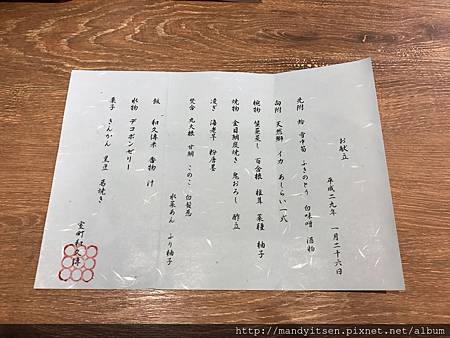 お献立
平成二九年 一月二十六日
先附 蛤 雪中筍 ふきのとう 白味噌 酒粕
向附 天然鰤 イカ あしらい一式
椀物 蟹蓋蒸し 百合根 椎茸 菜種 柚子
焼物 金目鯛炭焼き 鬼おろし 酢立
凌ぎ 海老芋 粉唐墨
焚合 丸大根 甘鯛 このこ 白髪葱
水菜あん ふり柚子
飯 和久傳米 香物 汁
水物 デコポンゼリー
菓子 きんかん 黒豆 葛焼き
室町和久傳
http://mandyitsen.pixnet.net/album